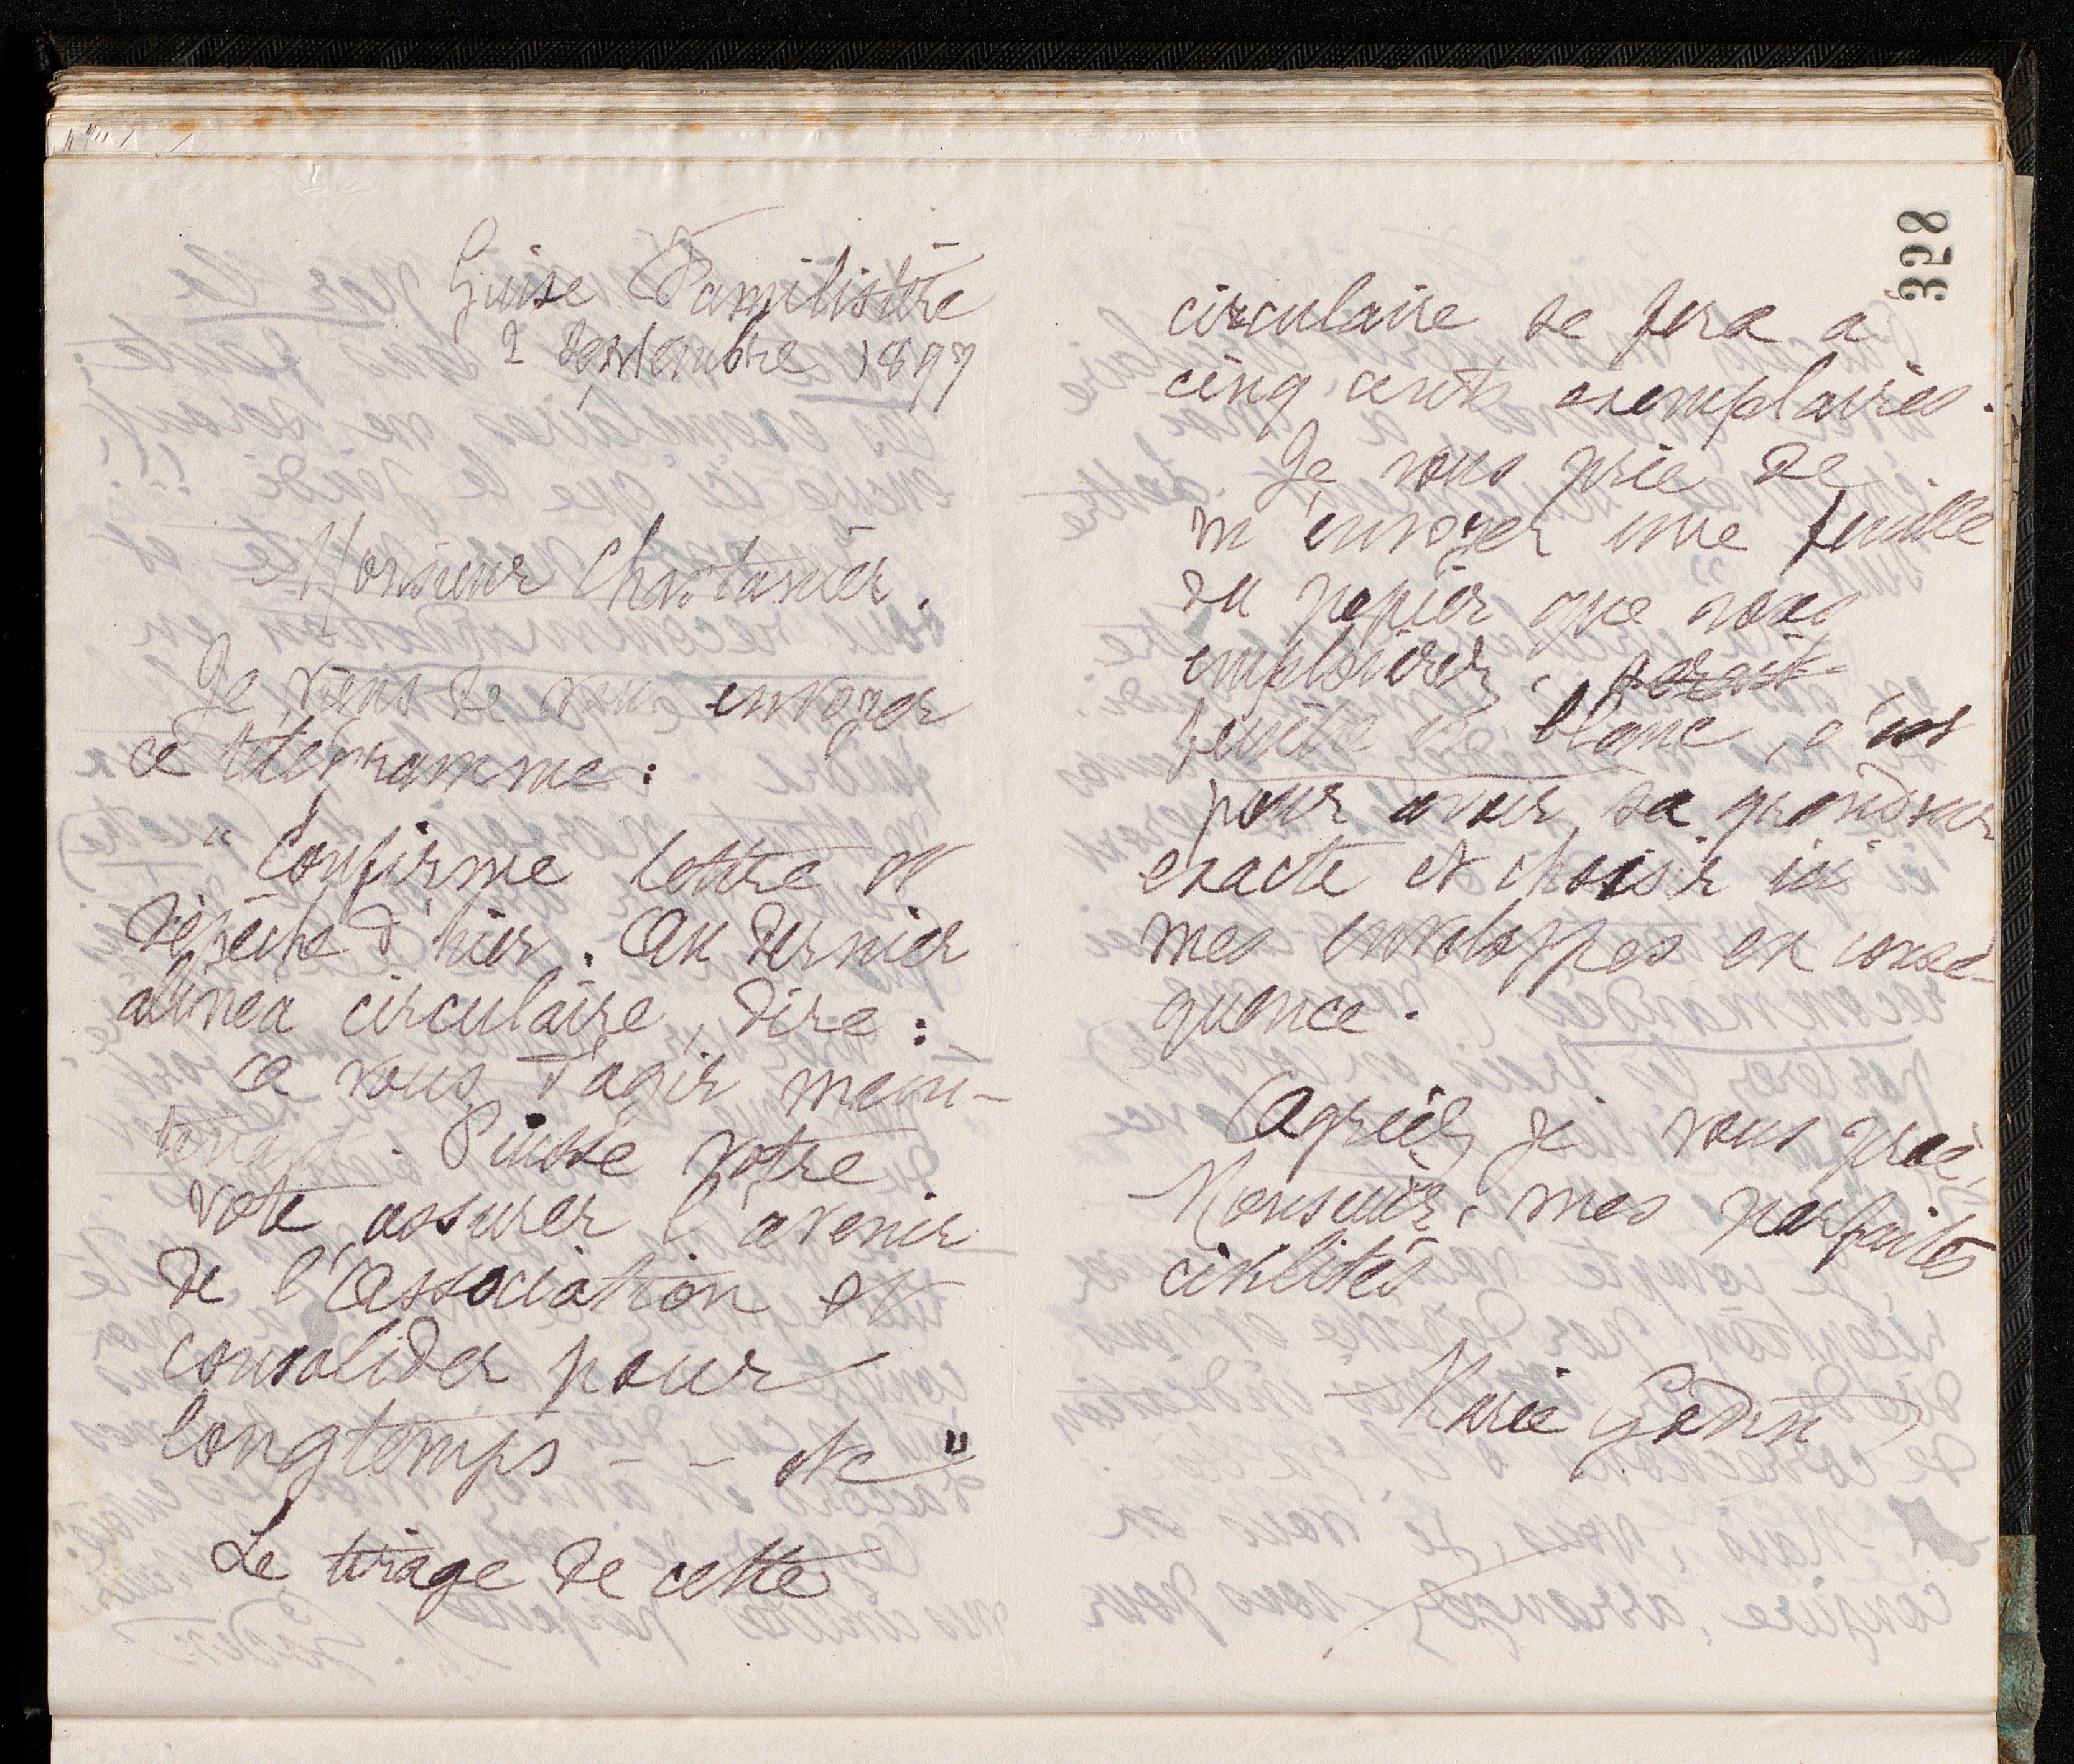 Guise Familistère
2 septembre 1897
Monsieur Chastanier.
Je viens de vous envoyer
ce télégramme :
" Confirme lettre et
dépêche d'hier. Au dernier
alinéa circulaire, dire :
a vous d'agir main-
tenant. Puisse votre
vote assurer l'avenir
de l'Association et
consolider pour
longtemps - - etc "
Le tirage de cette
328
circulaire se fera a
cinq cents exemplaires.
Je vous prie de
m'envoyer une feuille
du papier que vous
emploierez,
feuille en blanc, c'est
pour avoir sa grandeur
exacte et choisir ici
mes enveloppes en consé-
quence.
Agréez je vous prie,
Monsieur, mes parfaites
civilités
Marie Godin